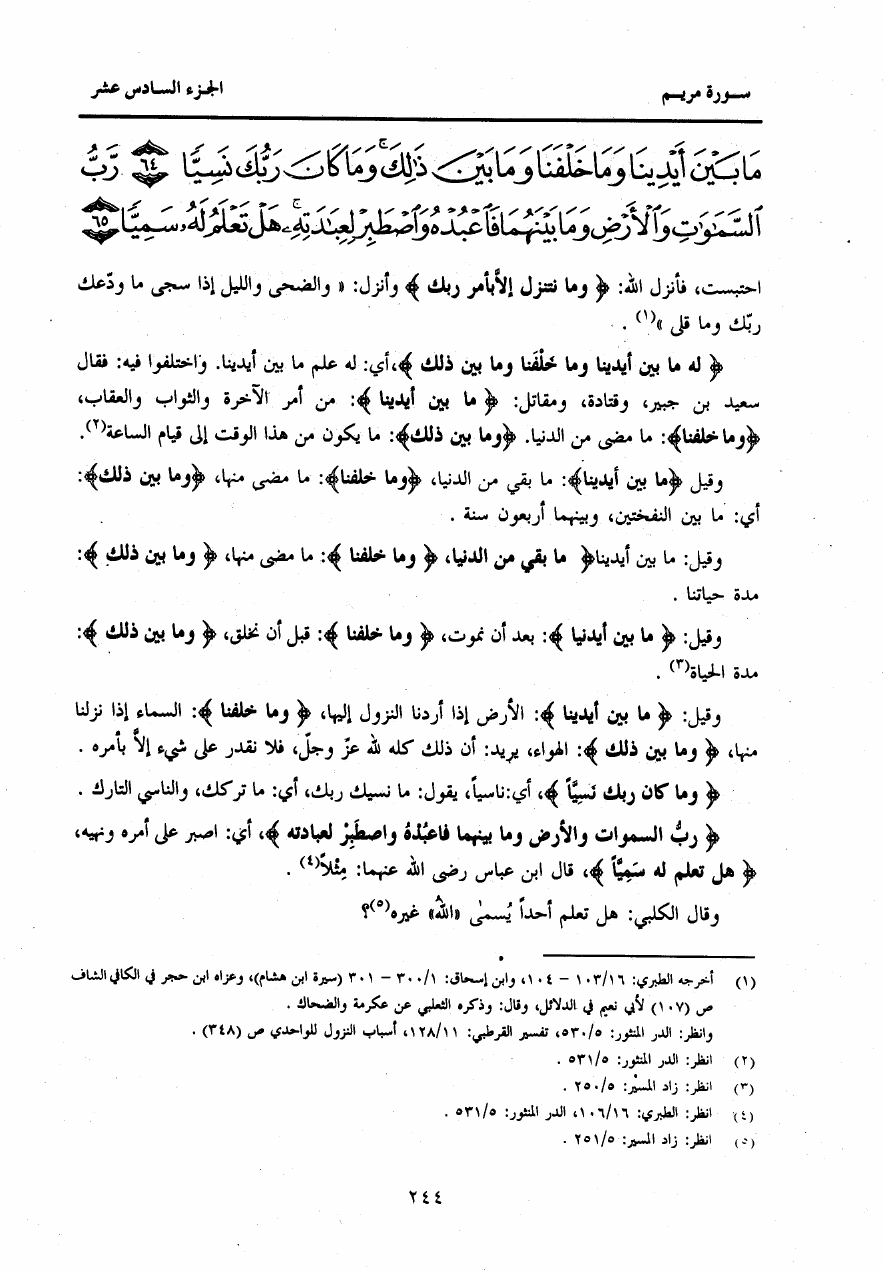 سورة مريم
الجزء السادس عشر
مَا بَيْنَ أَيْدِينَا وَمَا خَلْفَنَا وَمَا بَيْنَ ذَٰلِكَ ۚ وَمَا كَانَ رَبُّكَ نَسِيًّا ٦٤ رَّبُّ
ٱلسَّمَٰوَٰتِ وَٱلْأَرْضِ وَمَا بَيْنَهُمَا فَٱعْبُدْهُ وَٱصْطَبِرْ لِعِبَٰدَتِهِۦ ۚ هَلْ تَعْلَمُ لَهُۥ سَمِيًّا ٦٥
احتبست، فأنزل الله: ﴿ وما نتنزل إلاَّ بأمر ربك ﴾ وأنزل: « والضحى والليل إذا سجى ما ودّعك
ربّك وما قلى »(١) .
﴿ له ما بين أيدينا وما خَلْفَنا وما بين ذلك ﴾، أي: له علم ما بين أيدينا. واختلفوا فيه: فقال
سعيد بن جبير، وقتادة، ومقاتل: ﴿ ما بين أيدينا ﴾: من أمر الآخرة والثواب والعقاب،
﴿وما خلفنا﴾: ما مضى من الدنيا. ﴿وما بين ذلك﴾: ما يكون من هذا الوقت إلى قيام الساعة(٢).
وقيل ﴿ما بين أيدينا﴾: ما بقي من الدنيا، ﴿وما خلفنا﴾: ما مضى منها، ﴿وما بين ذلك﴾:
أي: ما بين النفختين، وبينهما أربعون سنة .
وقيل: ما بين أيدينا﴿ ما بقي من الدنيا، ﴿ وما خلفنا ﴾: ما مضى منها، ﴿ وما بين ذلك ﴾:
مدة حياتنا .
وقيل: ﴿ ما بين أيدنيا ﴾: بعد أن نموت، ﴿ وما خلفنا ﴾: قبل أن نخلق، ﴿ وما بين ذلك ﴾:
مدة الحياة(٣) .
وقيل: ﴿ ما بين أيدينا ﴾: الأرض إذا أردنا النزول إليها، ﴿ وما خلفنا ﴾: السماء إذا نزلنا
منها، ﴿ وما بين ذلك ﴾: الهواء، يريد: أن ذلك كله لله عزّ وجلّ، فلا نقدر على شيء إلاَّ بأمره .
﴿ وما كان ربك نَسِيَّاً ﴾، أي:ناسياً، يقول: ما نسيك ربك، أي: ما تركك، والناسي التارك .
﴿ ربُّ السموات والأرض وما بينهما فاعبُدْهُ واصطَبِرْ لعبادته ﴾، أي: اصبر على أمره ونهيه،
﴿ هل تعلم له سَمِيَّاً ﴾، قال ابن عباس رضى الله عنهما: مِثْلاً(٤) .
وقال الكلبي: هل تعلم أحداً يُسمىٰ «اللهُ» غيره(٥)؟
(١) أخرجه الطبري: ١٠٣/١٦ – ١٠٤، وابن إسحاق: ٣٠٠/١ – ٣٠١ (سيرة ابن هشام)، وعزاه ابن حجر في الكافي الشاف
ص (١٠٧) لأبي نعيم في الدلائل، وقال: وذكره الثعلبي عن عكرمة والضحاك .
وانظر: الدر المنثور: ٥٣٠/٥، تفسير القرطبي: ١٢٨/١١، أسباب النزول للواحدي ص (٣٤٨) .
(٢) انظر: الدر المنثور: ٥٣١/٥ .
(٣) انظر: زاد المسير: ٢٥٠/٥ .
(٤) انظر: الطبري: ١٠٦/١٦، الدر المنثور: ٥٣١/٥ .
(٥) انظر: زاد المسير: ٢٥١/٥ .
٢٤٤